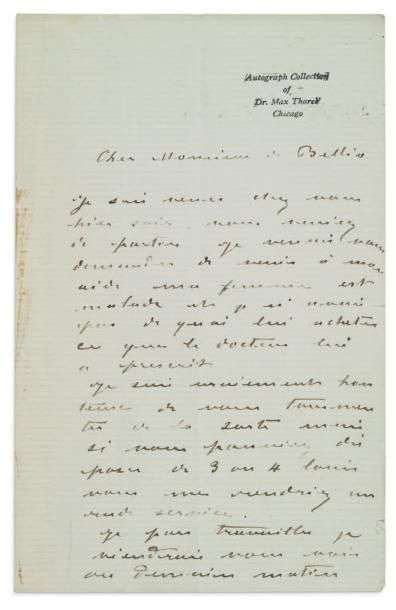 Autograph Collection
of
Dr. Max Thorek
Chicago
Cher Monsieur de Bellio
Je suis venu chez vous
hier soir, vous veniez
de partir je venais vous
demander de venir à mon
aide ma femme est
malade et je n'avais
pas de quoi lui acheter
ce que le docteur lui
a prescrit
Je suis vraiment hon
teux de vous tourmen
ter de la sorte mais
si vous pouviez dis
poser de 3 ou 4 louis
vous me rendriez un
rude service.
Je pars travailler je
viendrais vous voir
ou demain matin